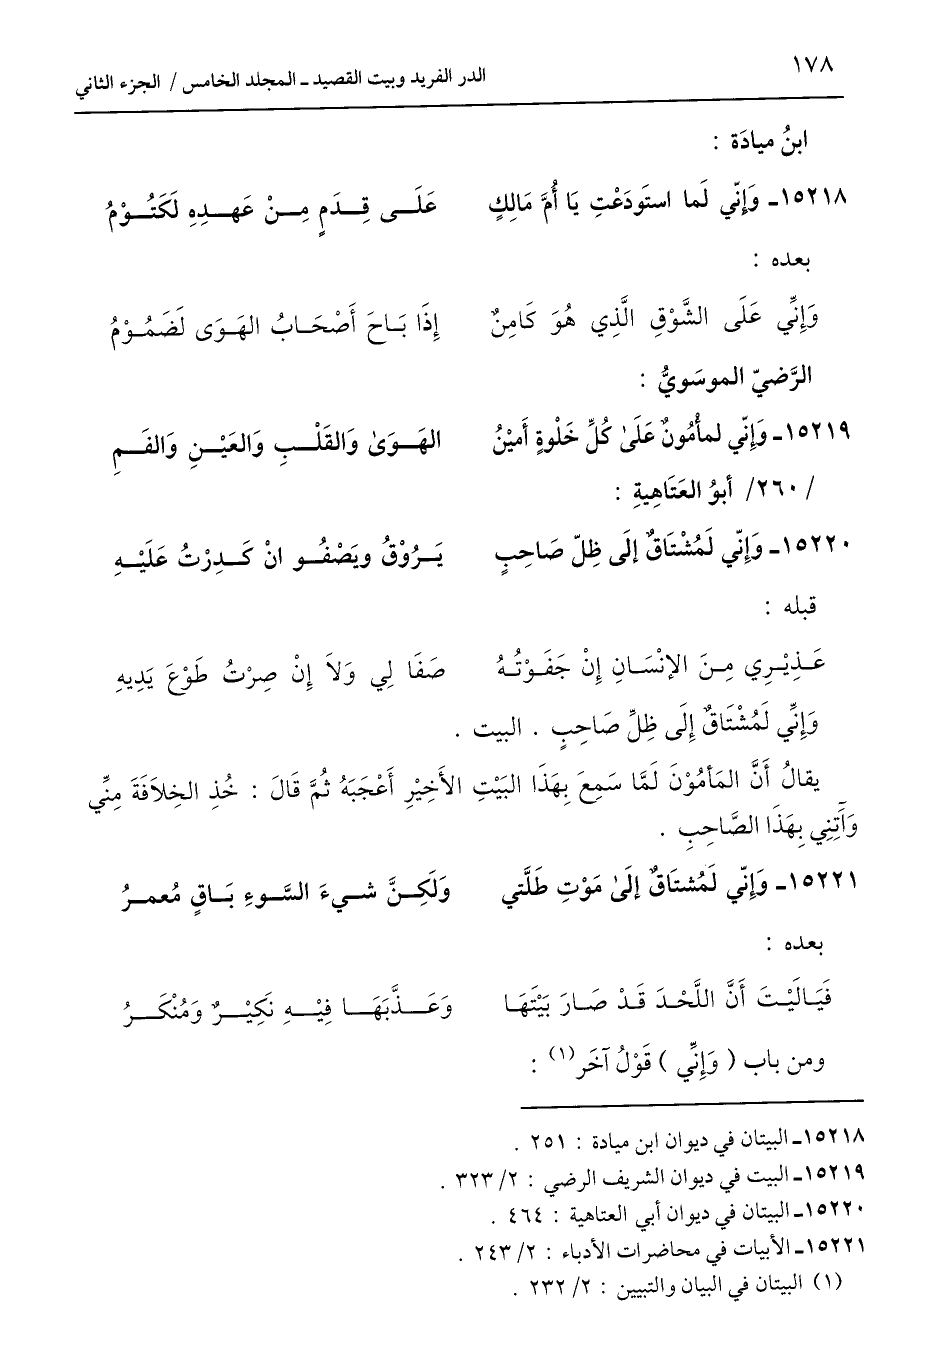 ١٧٨
الدر الفريد وبيت القصيد ـ المجلد الخامس / الجزء الثاني
ابنُ ميادَة :
١٥٢١٨ـ وَإِنّي لَما استَودَعْتِ يَا أُمَّ مَالِكٍ عَلَـى قِـدَمٍ مِـنْ عَهـدِهِ لَكَتُـوْمُ
بعده :
وَإِنِّي عَلَى الشَّوْقِ الَّذِي هُوَ كَامِنٌ إِذَا بَـاحَ أَصْحَـابُ الهَـوَى لَضَمُـوْمُ
الرَّضيّ الموسَويُّ :
١٥٢١٩ـ وَإِنّي لمأمُونٌ عَلَىٰ كُلِّ خَلْوةٍ أَمينُ الهَـوَىٰ وَالقَلْـبِ وَالعَيْـنِ وَالفَـمِ
/ ٢٦٠/ أبوُ العَتَاهِيةِ :
١٥٢٢٠ـ وَإِنّي لَمُشْتَاقٌ إلَى ظِلّ صَاحِبٍ يَـرُوْقُ ويَصْفُـو انْ كَـدِرْتُ عَلَيْـهِ
قبله :
عَـذِيْـرِي مِـنَ الإنْسَـانِ إِنْ جَفَـوْتُـهُ صَفَا لِي وَلاَ إِنْ صِرْتُ طَوْعَ يَدِيهِ
وَإِنِّي لَمُشْتَاقٌ إِلَى ظِلِّ صَاحِبٍ . البيت .
يقالُ أَنَّ المَأمُوْنَ لَمَّا سَمِعَ بِهَذَا البَيْتِ الأَخِيْرِ أَعْجَبَهُ ثُمَّ قَالَ : خُذِ الخِلاَفَةَ مِنِّي
وَآتِنِي بِهَذَا الصَّاحِبِ .
١٥٢٢١ـ وَإِنّي لَمُشتَاقٌ إلَىٰ مَوْتِ طَلَّتي وَلَكِـنَّ شـيءَ السَّـوءِ بَـاقٍ مُعمـرُ
بعده :
فَيَـالَيْـتَ أَنَّ اللَّحْـدَ قَـدْ صَـارَ بَيْتَهَـا وَعَـذَّبَهَـا فِيْـهِ نَكِيْـرٌ وَمُنْكَـرُ
ومن باب ( وَإِنِّي ) قَوْلُ آخَر(١) :
١٥٢١٨ـ البيتان في ديوان ابن ميادة : ٢٥١ .
١٥٢١٩ـ البيت في ديوان الشريف الرضي : ٢/ ٣٢٣ .
١٥٢٢٠ـ البيتان في ديوان أبي العتاهية : ٤٦٤ .
١٥٢٢١ـ الأبيات في محاضرات الأدباء : ٢/ ٢٤٣ .
(١) البيتان في البيان والتبيين : ٢/ ٢٣٢ .